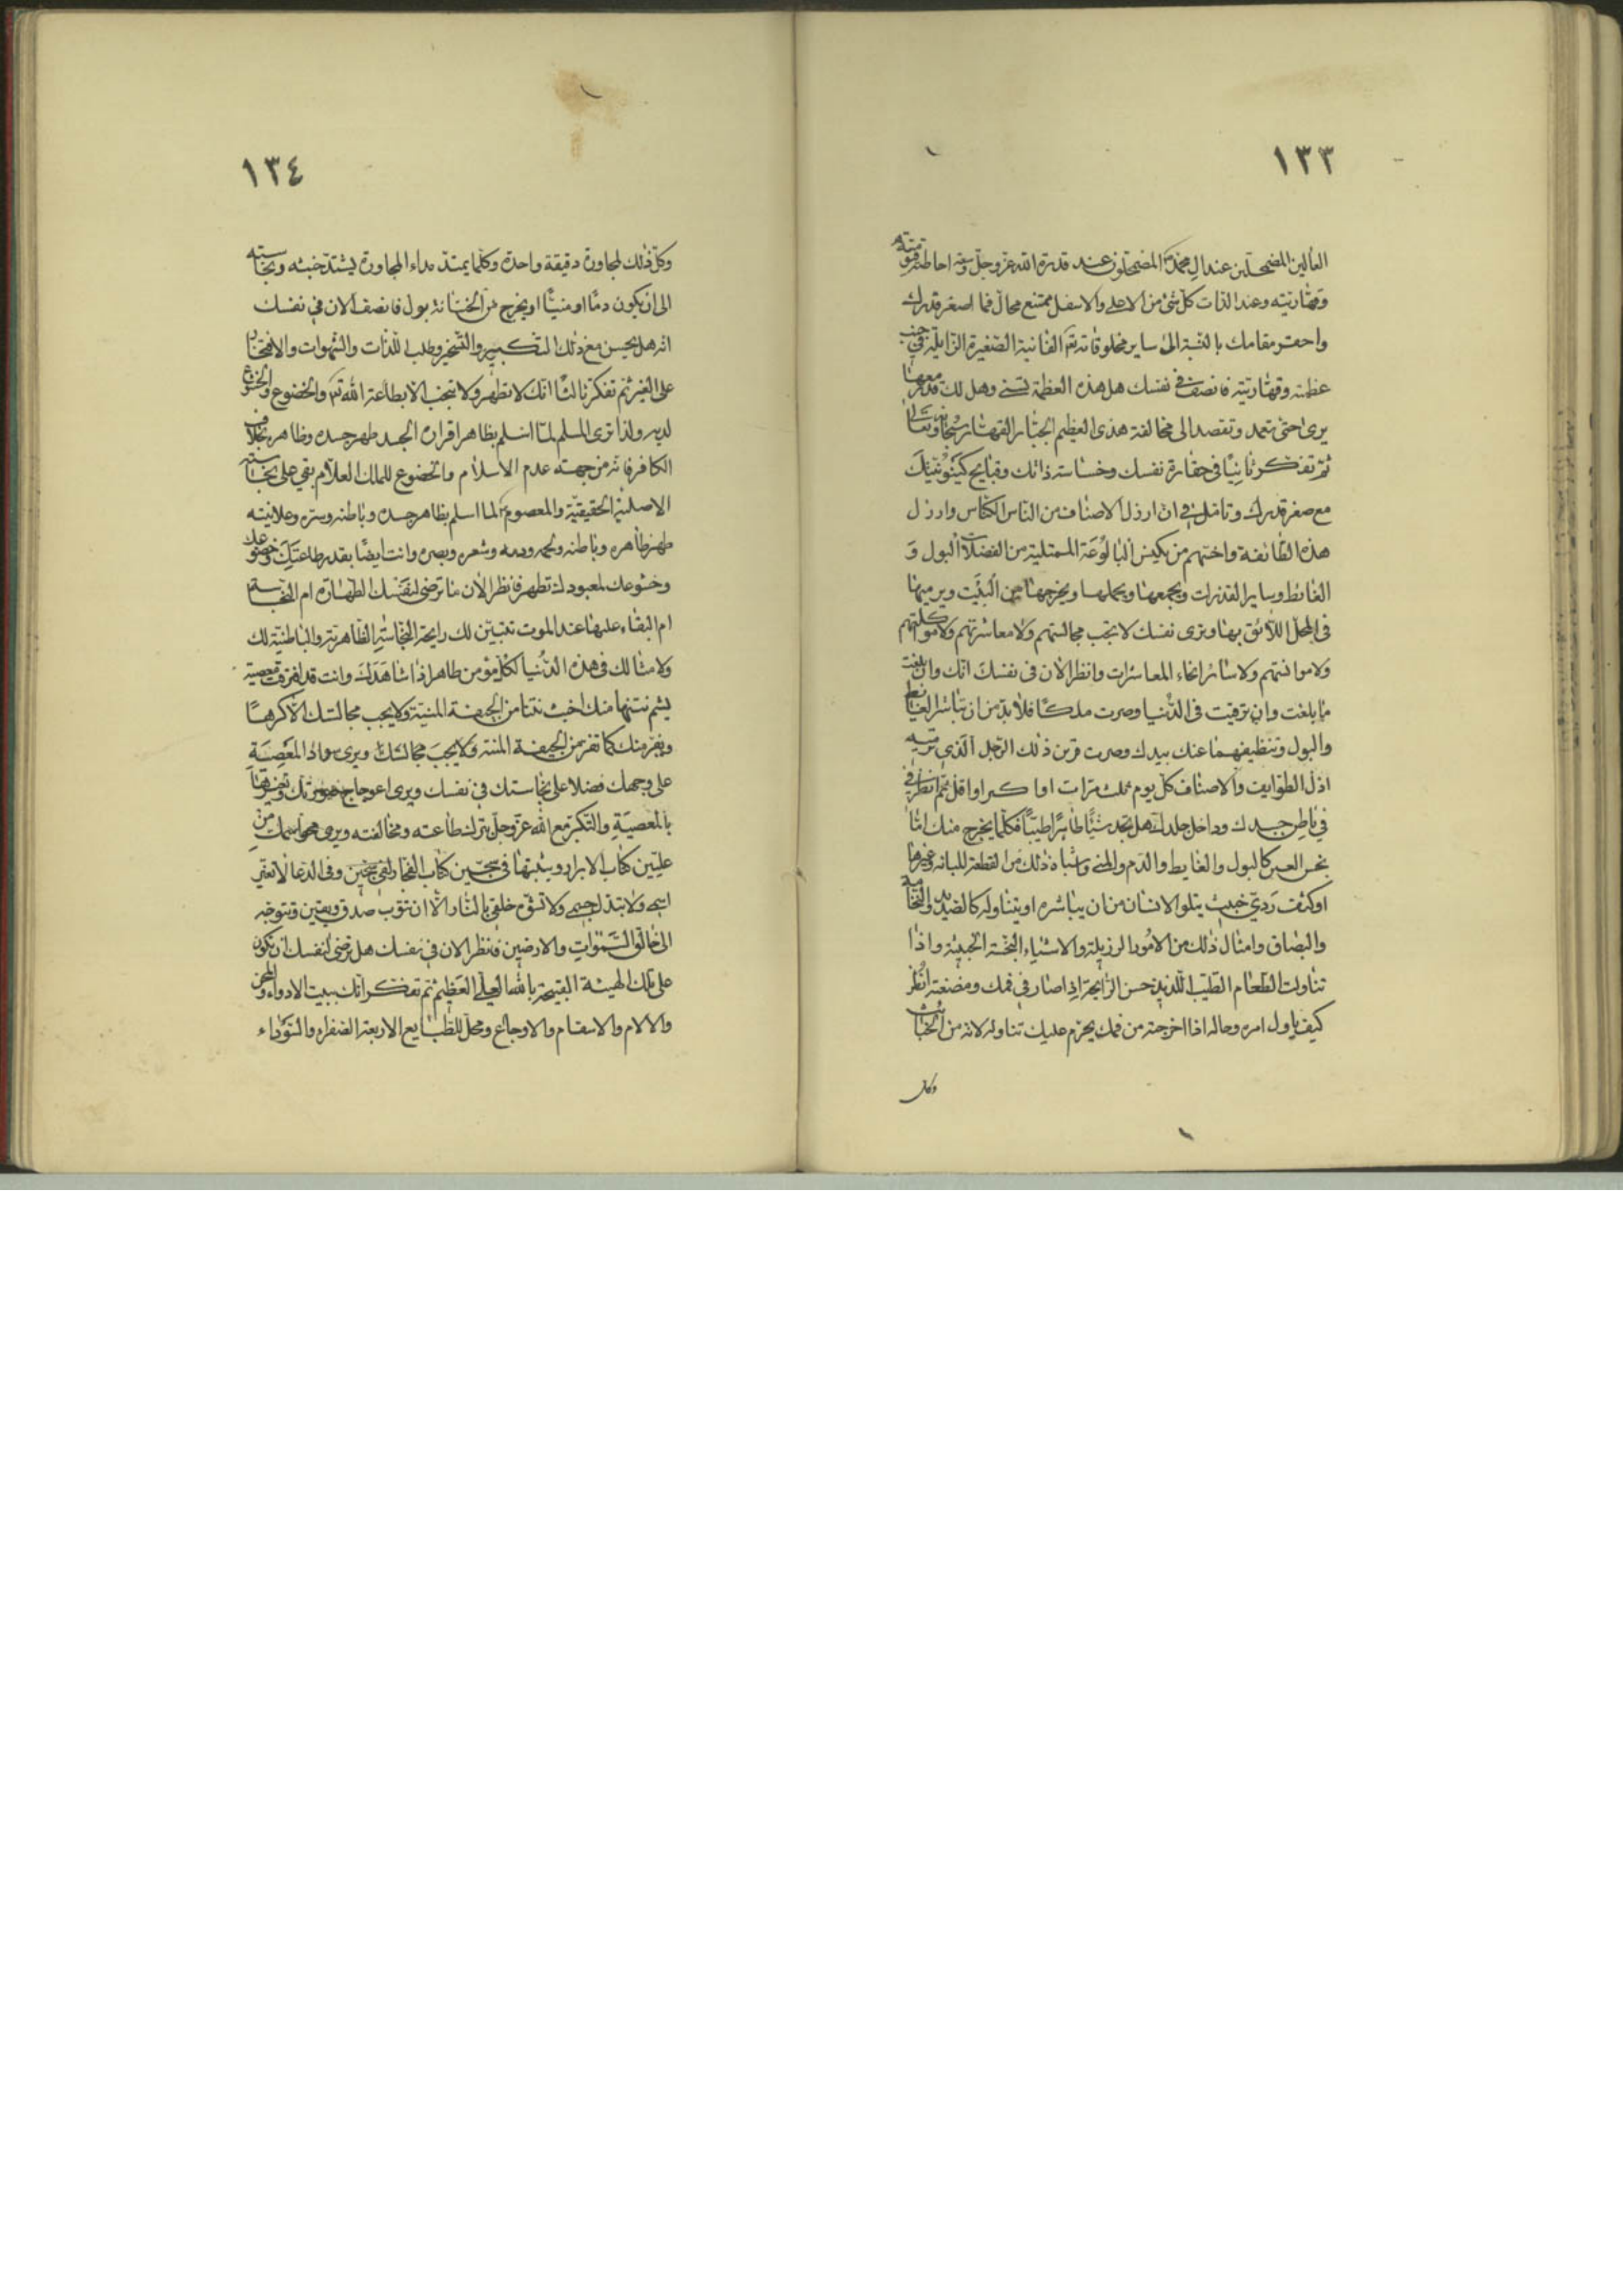 ١٣٣
العالين المضمحلين عند ال محمد المضمحلون عند قدرة الله عز وجل وسعة احاطة قيوميته
وقهاريته وعند الذات كل شئ من الاعلى والاسفل ممتنع محال فما اصغر قدرك
واحقر مقامك بالنسبة الى ساير مخلوقاته الفانية الصغيرة الزايلة في جنب
عظمته وقهاريته فانصف في نفسك هل هذه العظمة لشئ وهل لك قدر معها
يرى حتى تتعمد وتقصد الى مخالفة هذى العظيم الجبار القهار سبحانه وتعالى
ثم تفكر ثانيا في حقارة نفسك وخساسة ذاتك وقبايح كينونيتك
مع صغر قدرك وتامل في ان ارذل الاصناف من الناس الكناس وارذل
هذه الطائفة واخسهم من يكنس البالوعة الممتلية من الفضلات البول و
الغائط وساير القذرات ويجمعها ويحملها ويخرجها من البيت ويرميها
في المحل اللائق بها وترى نفسك لا تحب مجالستهم ولا معاشرتهم ولا مواكلتهم
ولا موانستهم ولا سائر انحاء المعاشرات وانظر الان في نفسك انك وان بلغت
ما بلغت وان ترقيت في الدنيا وصرت ملكا فلا بد من ان تباشر الغائط
والبول وتنظيفهما عنك بيدك وصرت قرين ذلك الرجل الذي ترميه
اذل الطوايف والاصناف كل يوم ثلث مرات او اكثر او اقل ثم انظر في
في باطن جسدك وداخل جلدك هل تجد شيئا طاهرا طيبا فكلما يخرج منك اما
نجس العين كالبول والغايط والدم والمني واشباه ذلك من القطعة المبانة وغيرها
او كثف ردي خبيث يتلو الانسان من ان يباشره او يتناوله كالصديد والنخامة
والبصاق وامثال ذلك من الامور الرزيلة والاشياء النجسة الخبيثة واذا
تناولت الطعام الطيب اللذيذ حسن الرايحة اذا صار في فمك ومضغته انظر
كيف ياول امره وحاله اذا اخرجته من فمك يحرم عليك تناوله لانه من الخبائث
وكل
١٣٤
وكل ذلك لمجاورة دقيقة واحدة وكلما يمتد مداء المجاورة يشتد خبثه ونجاسته
الى ان يكون دما او منيا او يخرج من الختانة بول فانصف الان في نفسك
انه هل يحسن مع ذلك التكبر والتبختر وطلب اللذات والشهوات والافتخار
على الغير ثم تفكر ثالثا انك لا تطهر ولا تنجب الا بطاعة الله والخضوع والخشوع
لديه ولذا ترى المسلم لما اسلم بظاهر اقراره الجسد طهر جسده وظاهره بخلاف
الكافر فانه من جهة عدم الاسلام والخضوع للملك العلام بقي على نجاسته
الاصلية الحقيقية والمعصوم لما اسلم بظاهر جسده وباطنه وسره وعلانيته
طهر ظاهره وباطنه ولحمه ودمه وشعره وبصره وانت ايضا بقدر طاعتك وخضوعك
وخشوعك لمعبودك تطهر فانظر الان ما ترضى لنفسك الطهارة ام النجاسة
ام البقاء عليها عند الموت تتبين لك رايحة النجاسة الظاهرية والباطنية لك
ولامثالك في هذه الدنيا لكل مؤمن طاهر اذا شاهدك وانت قد اقترفت معصية
يشم نتنها منك اخبث نتنا من الجيفة المنتنة ولا يحب مجالستك الا كرها
ويفر منك كما تفر من الجيفة المنتنة ولا يحب مجالستك ويرى سواد المعصية
على وجهك فضلا على نجاستك في نفسك ويرى اعوجاج صورتك وتغيرها
بالمعصية والتكبر مع الله عز وجل بترك طاعته ومخالفته ويرى محو اسمك من
عليين كتاب الابرار ويثبتها في سجين كتاب الفجار لفي سجين وفي الدعا لا تغير
اسمي ولا تبدل جسمي ولا تشوه خلقي بالنار الا ان تتوب بصدق ويقين وتتوجه
الى خالق السموات والارضين فنظر الان في نفسك هل ترضى لنفسك ان تكون
على تلك الهيئة القبيحة بالله العلي العظيم ثم تفكر انك بيت الادواء والمحن
والالام والاسقام والاوجاع ومحل للطبايع الاربعة الصفراء والسوداء